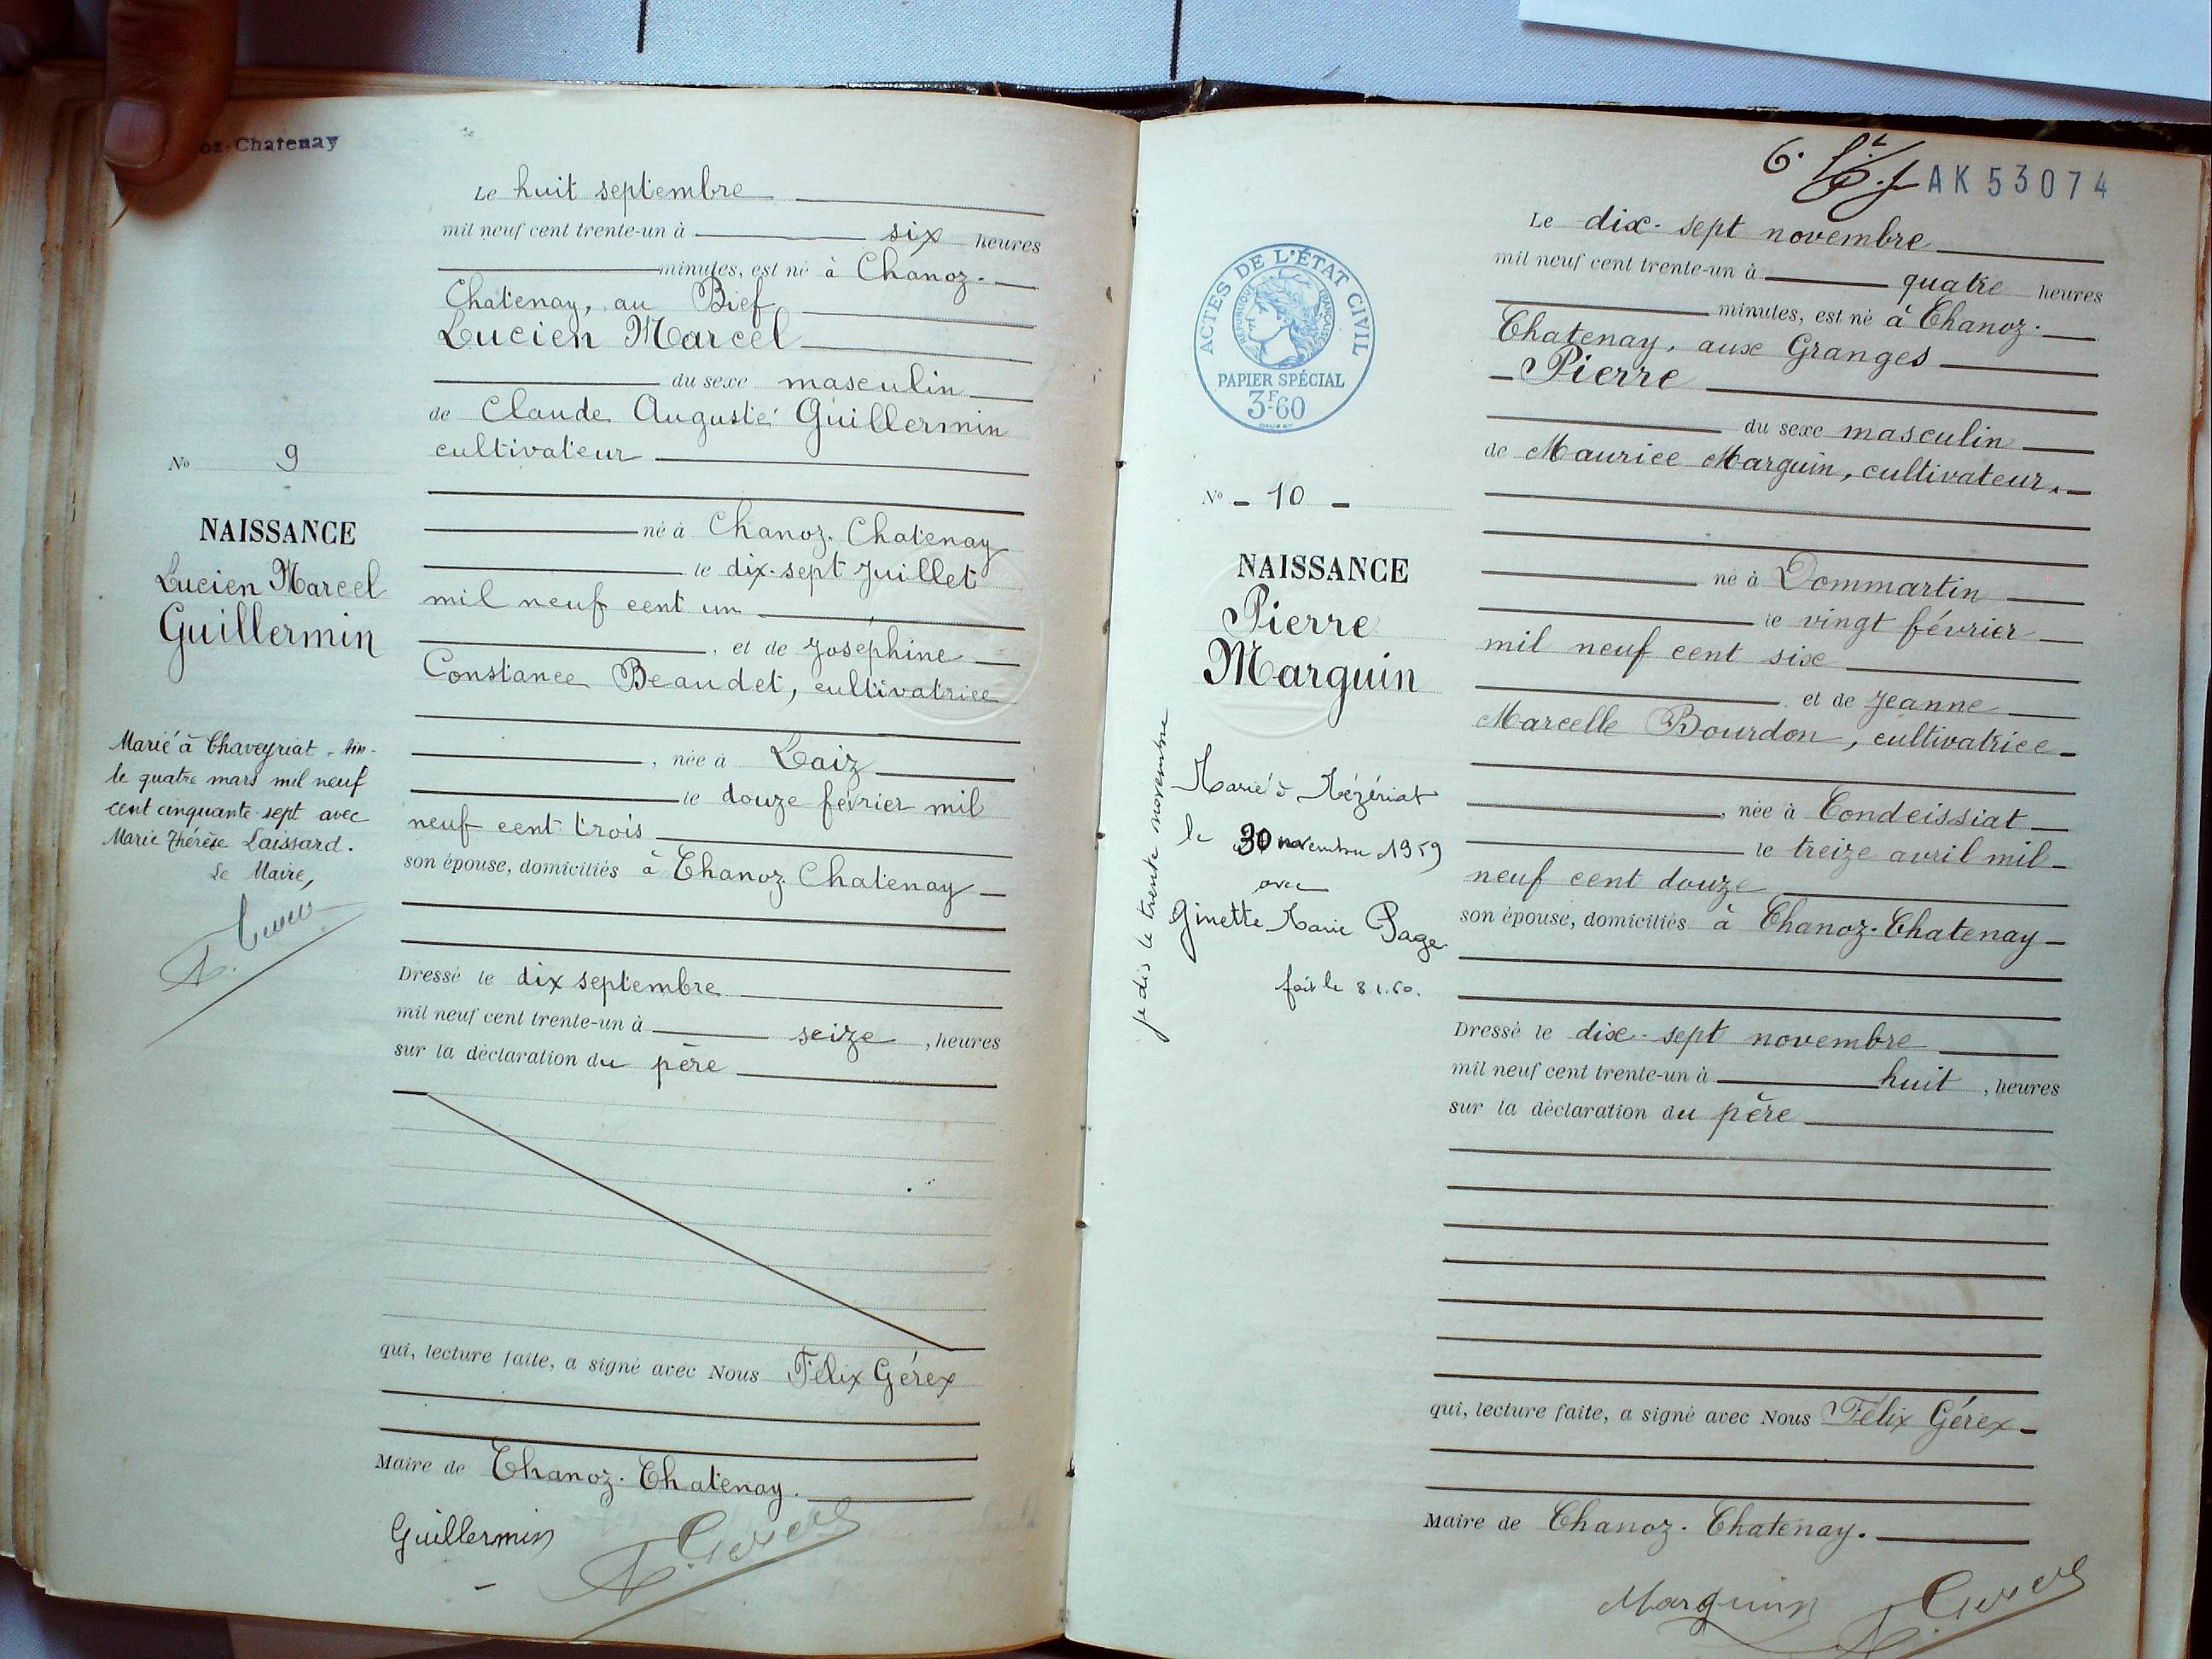 oz-Chatenay
Le huit septembre
mil neuf cent trente-un à six heures
minutes, est né à Chanoz-
Chatenay, au Bief
Lucien Marcel
du sexe masculin
de Claude Auguste Guillermin
cultivateur
né à Chanoz-Chatenay
le dix-sept Juillet
mil neuf cent un
, et de Joséphine
Constance Beaudet, cultivatrice
, née à Laiz
le douze février mil
neuf cent trois
son épouse, domiciliés à Chanoz-Chatenay
Dressé le dix septembre
mil neuf cent trente-un à seize, heures
sur la déclaration du père
qui, lecture faite, a signé avec Nous Félix Gérex
Maire de Chanoz-Chatenay.
Guillermin
No 9
NAISSANCE
Lucien Marcel
Guillermin
Marié à Chaveyriat, Ain-
le quatre mars mil neuf
cent cinquante-sept avec
Marie Thérèse Laissard.
Le Maire,
6.
AK53074
Le dix-sept novembre
mil neuf cent trente-un à quatre heures
minutes, est né à Chanoz-
Chatenay, aux Granges
Pierre
du sexe masculin
de Maurice Marguin, cultivateur.
né à Dommartin
le vingt février
mil neuf cent six
et de Jeanne
Marcelle Bourdon, cultivatrice
, née à Condeissiat
le treize avril mil
neuf cent douze
son épouse, domiciliés à Chanoz-Chatenay
Dressé le dix-sept novembre
mil neuf cent trente-un à huit, heures
sur la déclaration du père
qui, lecture faite, a signé avec Nous Félix Gérex
Maire de Chanoz-Chatenay.
Marguin
ACTES DE L'ÉTAT CIVIL
RÉPUBLIQUE FRANÇAISE
PAPIER SPÉCIAL
3F.60
No - 10 -
NAISSANCE
Pierre
Marguin
Marié à Mézériat
le 30 novembre 1959
avec
Ginette Marie Page
fait le 8.1.60.
je dis le trente novembre